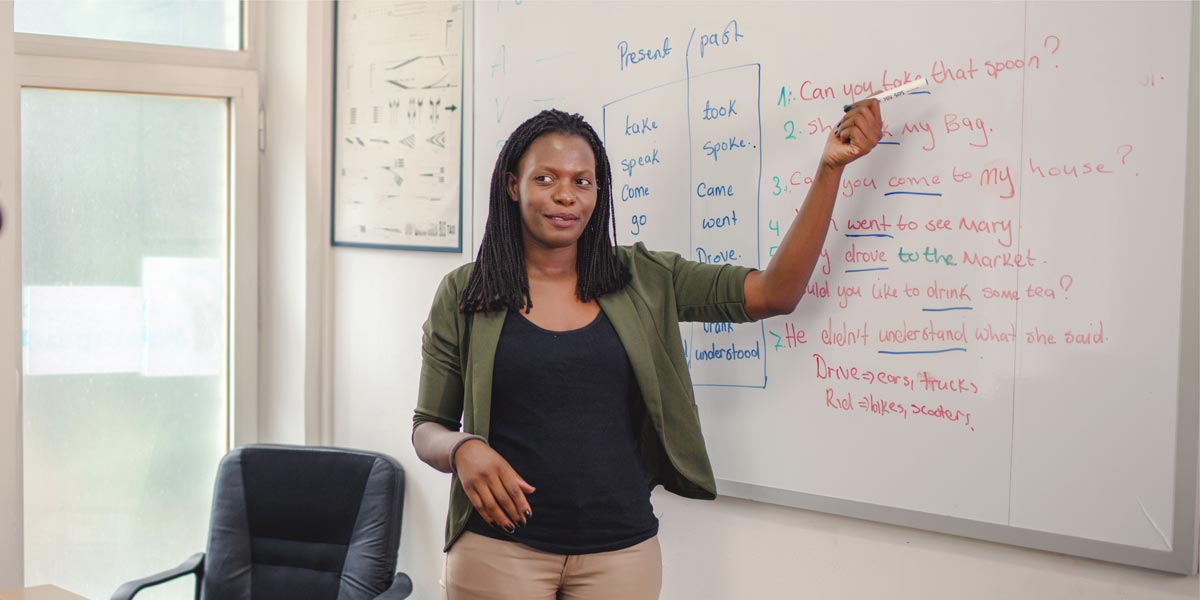 Present / past
take took
speak spoke.
Come Came
go went
Drove.
drank
understood
1. Can you take that spoon?
2. my Bag.
3. you come to my house?
4 went to see Mary.
drove to the Market.
you like to drink some tea?
7. He didn't understand what she said.
Drive => cars, trucks
Rid => bikes, scooters,